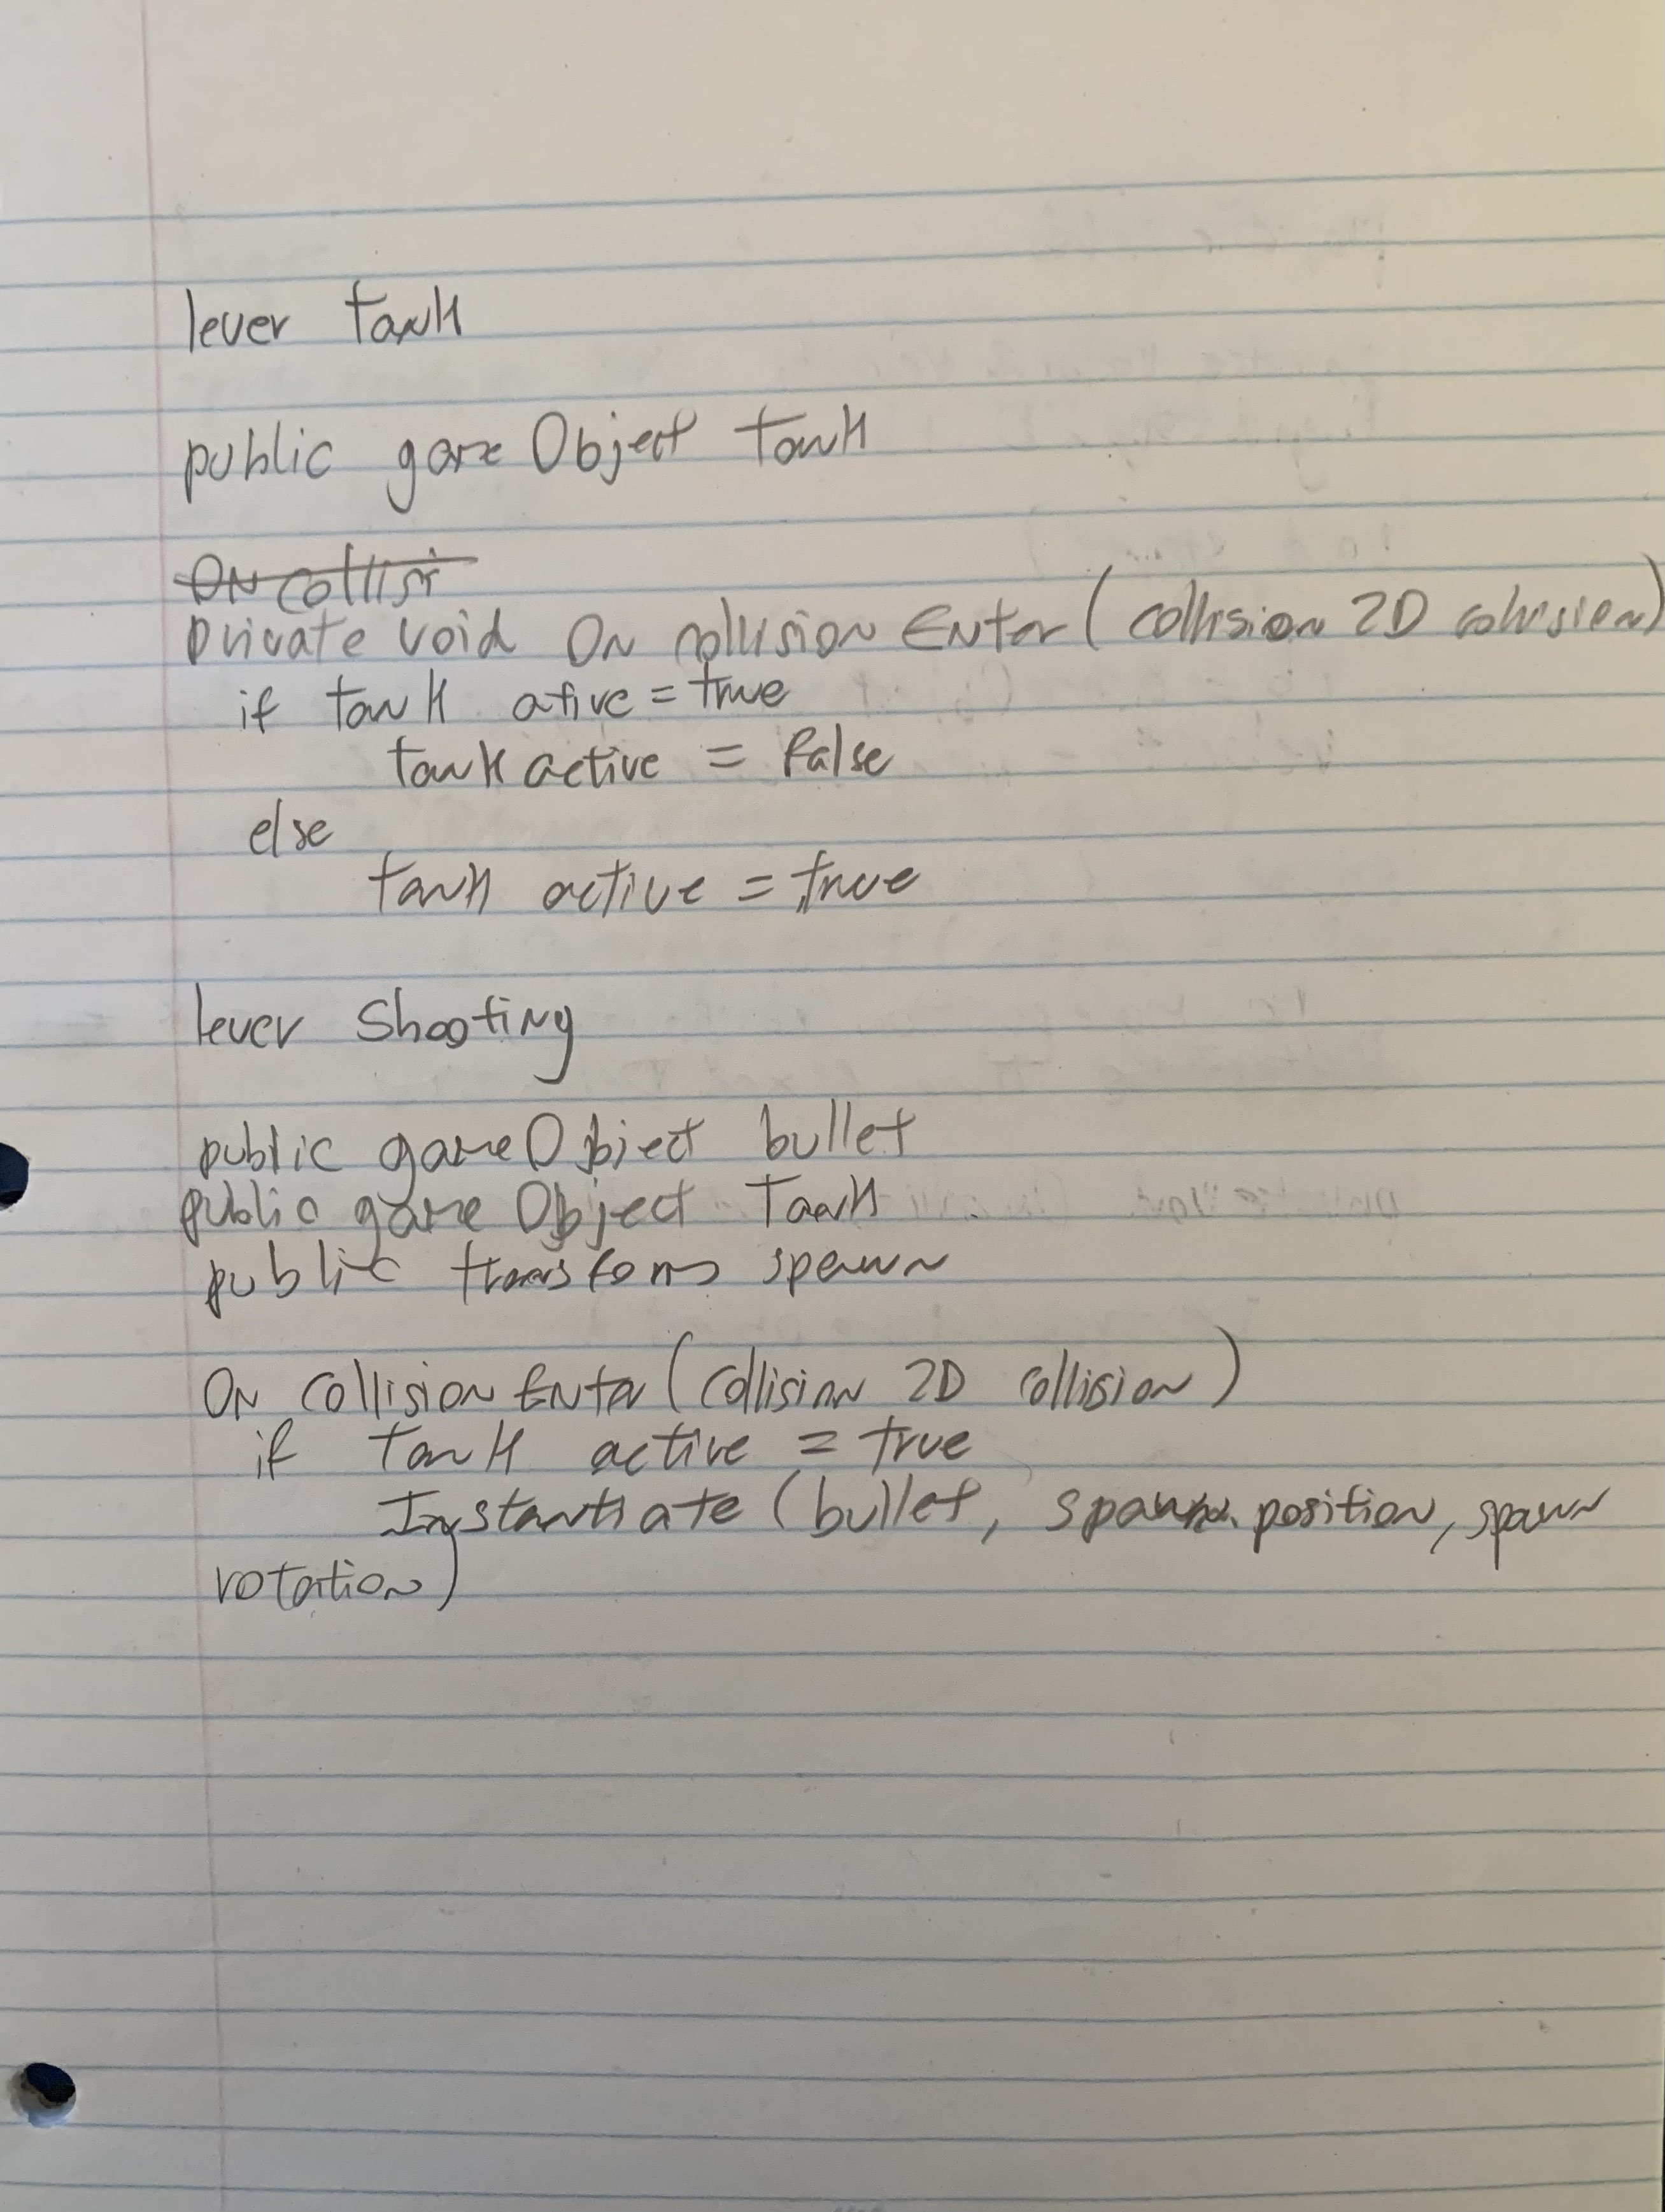 lever tank
public game Object tank
ON collisi
private void ON collision ENter (collision 2D collision)
if tank ative = true
tank active = false
else
tank active = true
lever shooting
public gameObject bullet
public game Object Tank
public transform spawn
ON collision ENter (collision 2D collision)
if tank active = true
Instantiate (bullet, spawn.position, spawn
rotation)